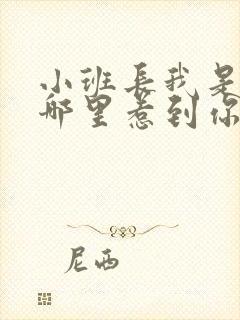 小班長我是
哪里惹到你
尼西